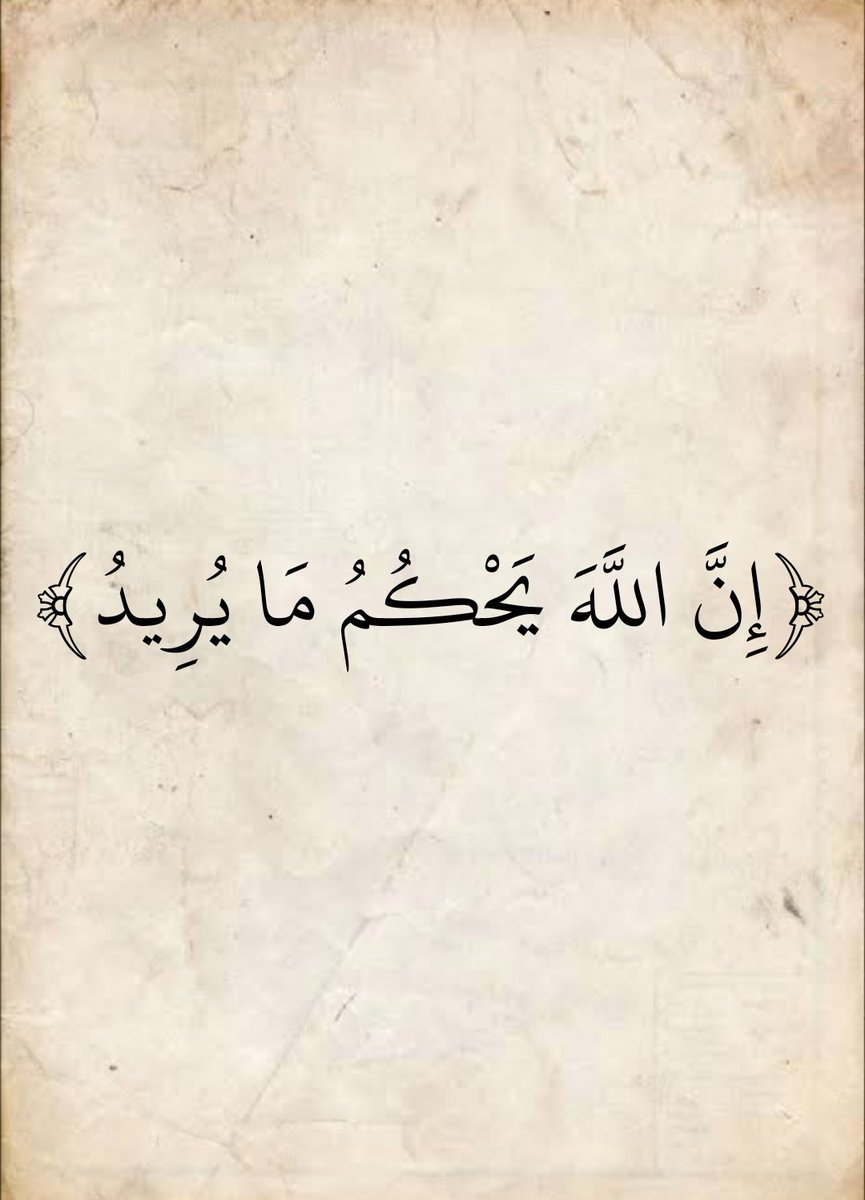 ﴿إِنَّ اللَّهَ يَحْكُمُ مَا يُرِيدُ﴾